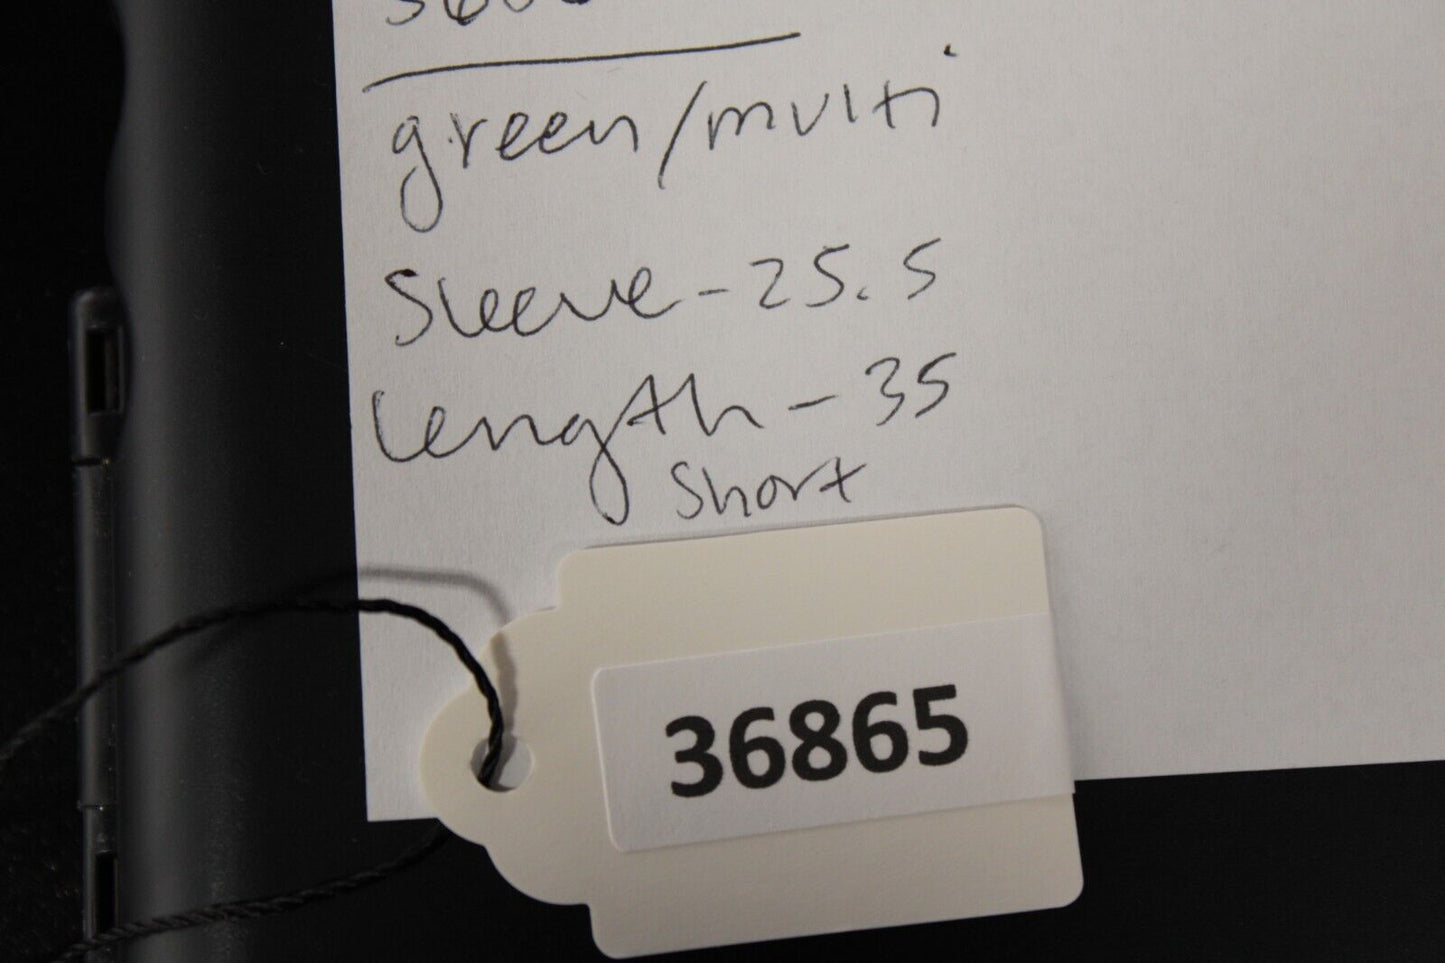 green/multi
Sleeve - 25.5
Length - 35
Short
36865